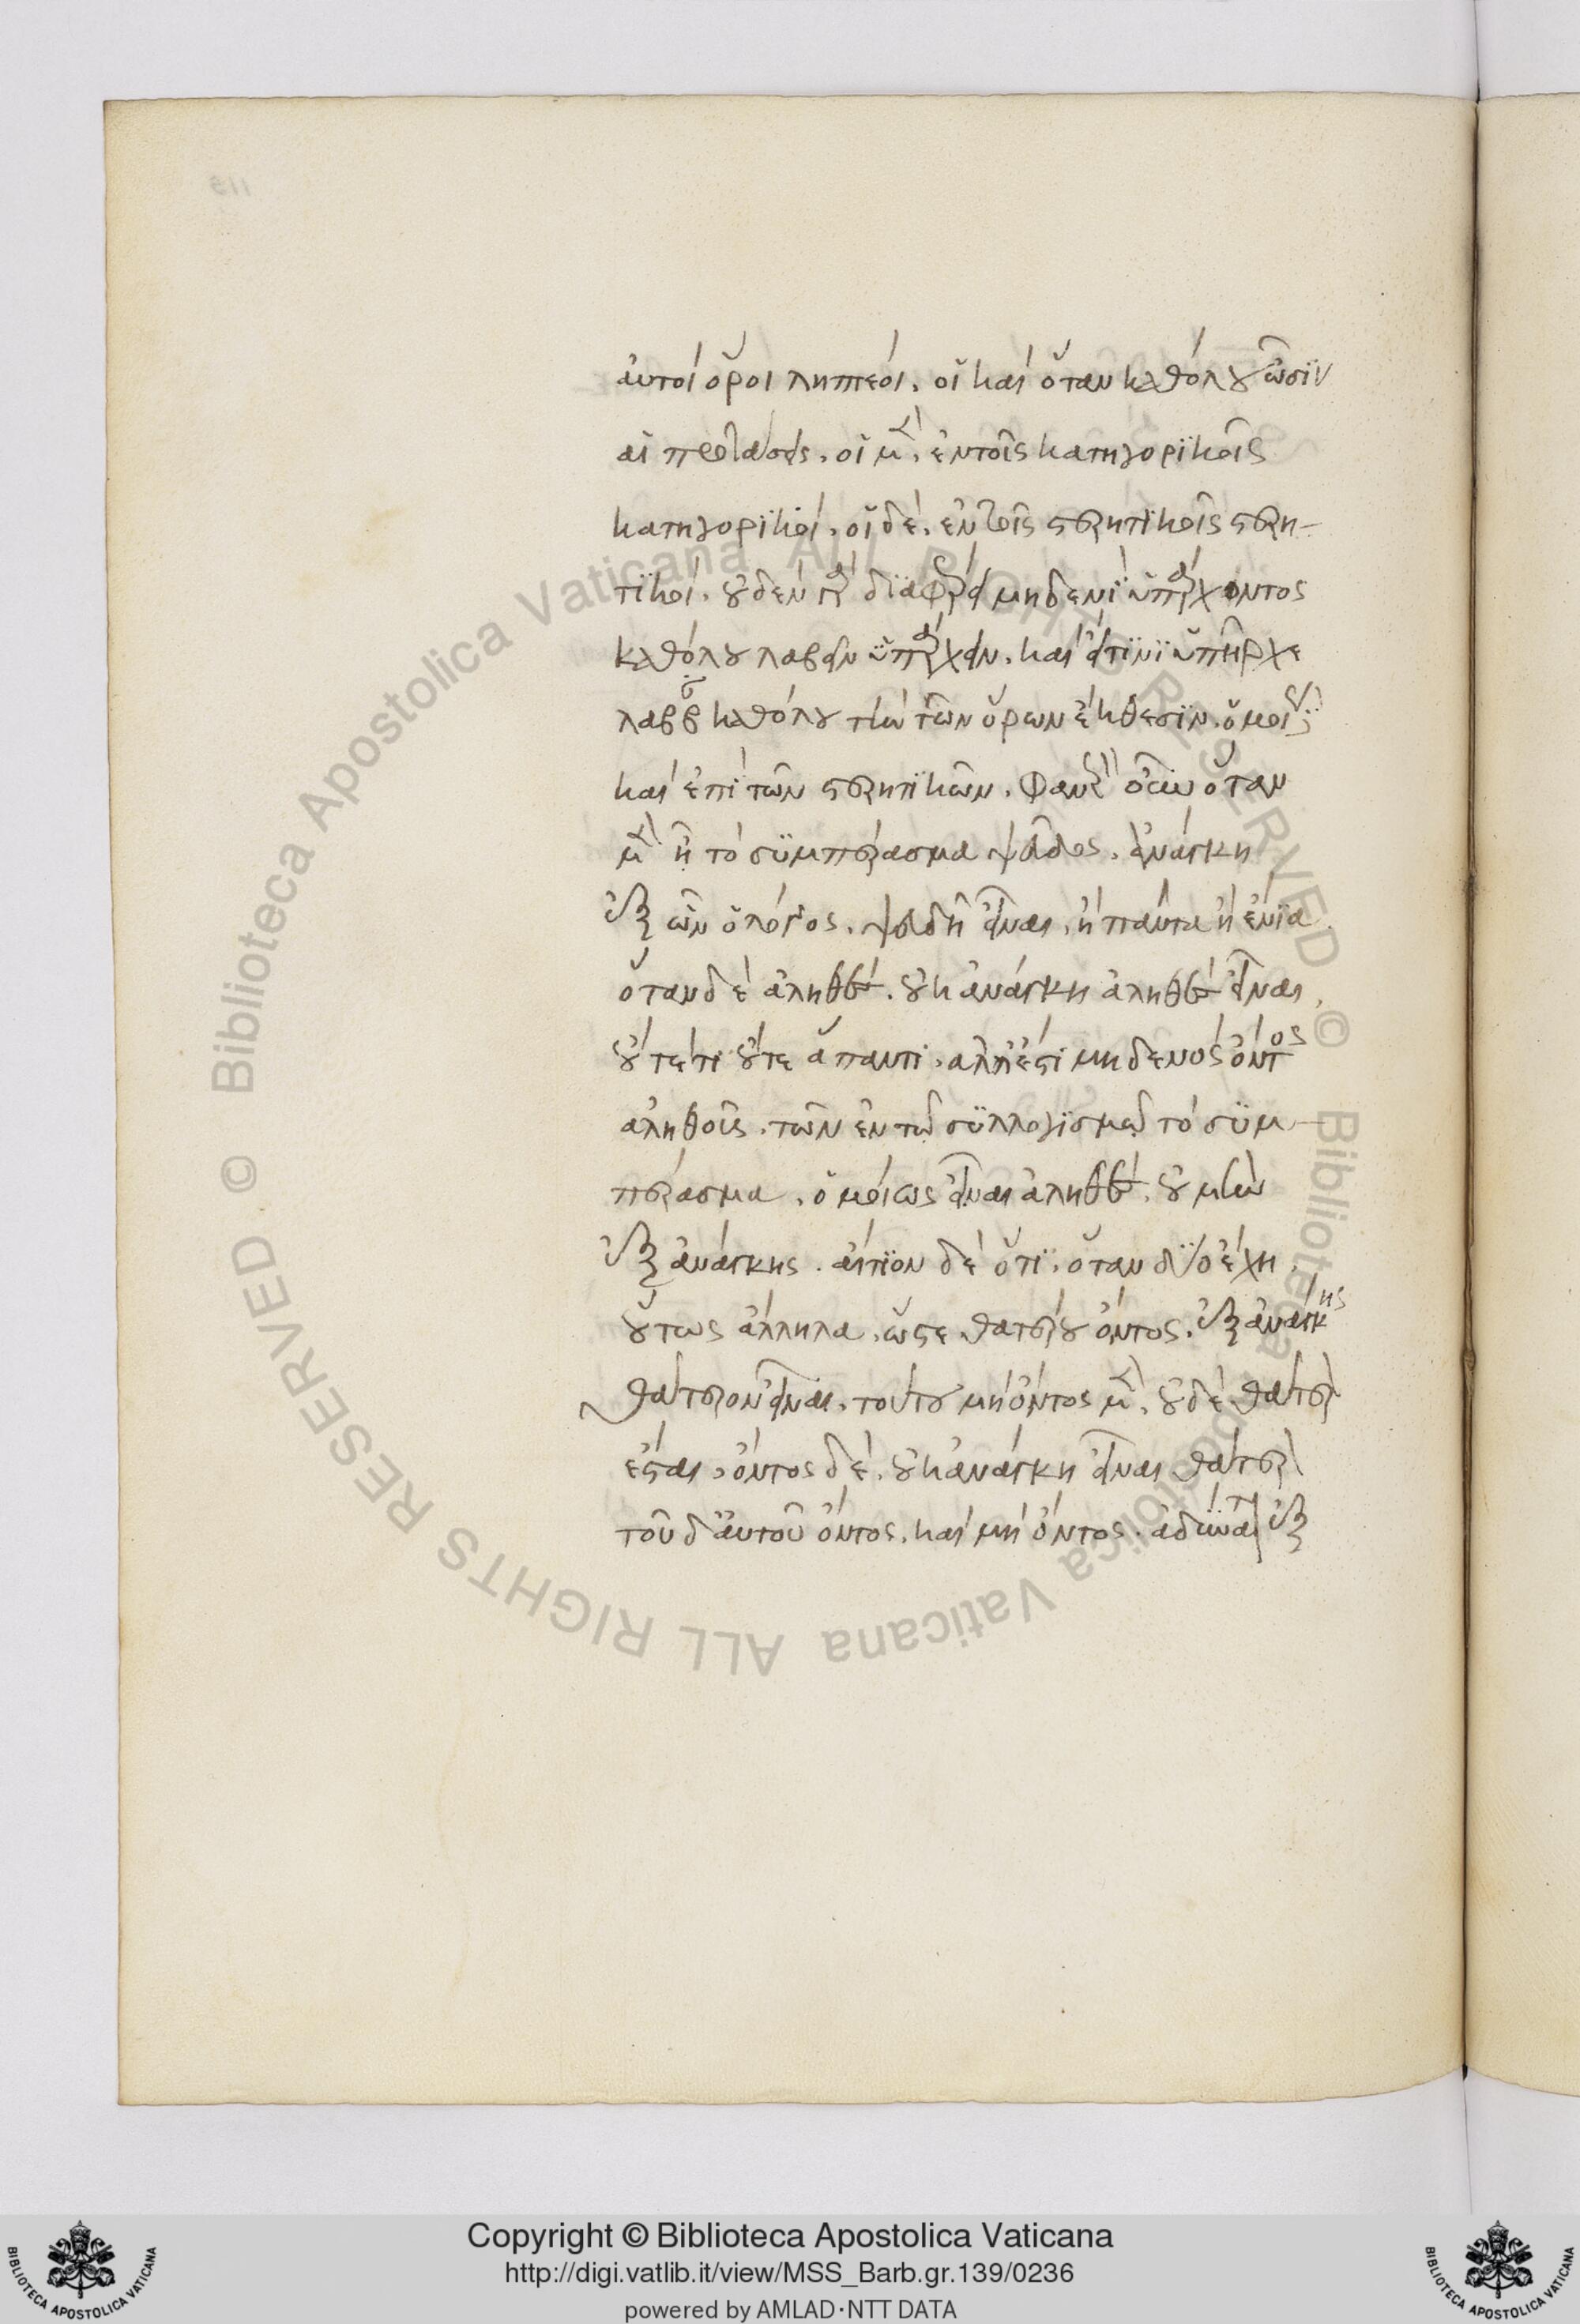 αὐτοὶ ὅροι ληπτέοι. οἳ καὶ ὅταν καθόλου ὦσϊν
αἱ προτάσεις. οἱ μὲν. ἐν τοῖς κατηγορϊκοῖς
κατηγορϊκοί. οἱ δὲ. ἐν τοῖς στερητϊκοῖς στερη-
τϊκοί. οὐδὲν γὰρ δϊαφέρει μηδενὶ ὑπάρχοντος
καθόλου λαβεῖν ὑπάρχειν. καὶ εἰ τϊνὶ ὑπῆρχε
λαβεῖν καθόλου τὴν τῶν ὅρων ἔκθεσϊν. ὁμοίως
καὶ ἐπὶ τῶν στερητϊκῶν. φανερὸν οὖν ὅταν
μὲν ᾖ τὸ συμπέρασμα ψεῦδος. ἀνάγκη
ἐξ ὧν ὁ λόγος. ψευδῆ εἶναι. ἢ πάντα ἢ ἔνϊα.
ὅταν δὲ ἀληθὲς. οὐκ ἀνάγκη ἀληθὲς εἶναι.
οὔτε τι οὔτε ἅπαντι. ἀλλ' ἔστι μηδενὸς ὄντος
ἀληθοῦς. τῶν ἐν τῷ συλλογϊσμῷ τὸ συμ-
πέρασμα. ὁμοίως εἶναι ἀληθὲς. οὐ μὴν
ἐξ ἀνάγκης. αἴτϊον δὲ ὅτϊ. ὅταν δύο ἔχη.
οὕτως ἄλληλα. ὥστε θατέρου ὄντος. ἐξ ἀνάγκης
θάτερον εἶναι. τούτου μὴ ὄντος μὲν. οὐδὲ θάτερον
ἔσται. ὄντος δὲ. οὐκ ἀνάγκη εἶναι θάτερον
τοῦ δ' αὐτοῦ ὄντος. καὶ μὴ ὄντος. ἀδύνατον ἐξ
Copyright © Biblioteca Apostolica Vaticana
http://digi.vatlib.it/view/MSS_Barb.gr.139/0236
powered by AMLAD·NTT DATA
© Biblioteca Apostolica Vaticana ALL RIGHTS RESERVED © Biblioteca Apostolica Vaticana ALL RIGHTS RESERVED
BIBLIOTECA APOSTOLICA VATICANA
BIBLIOTECA APOSTOLICA VATICANA